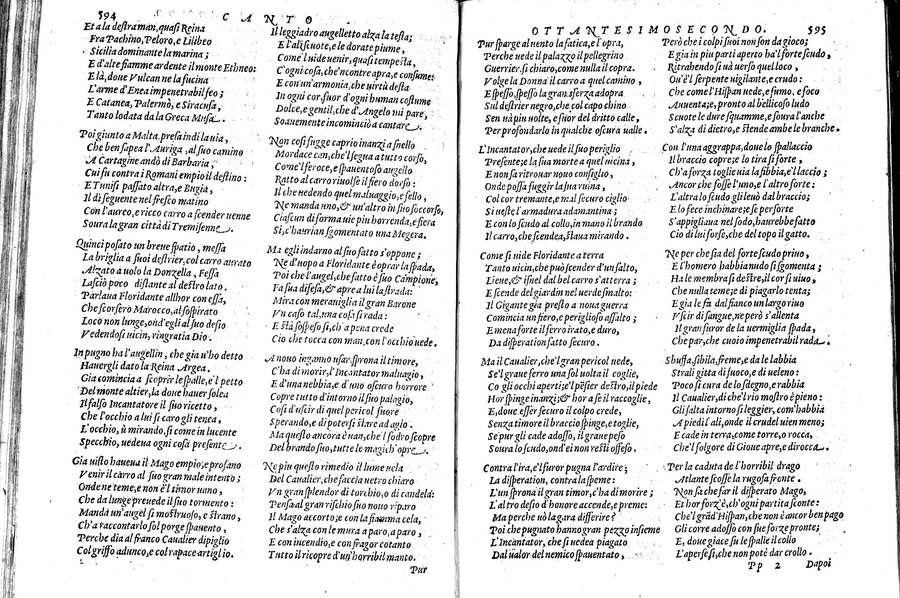 594 CANTO
Et a la destra man, quasi Reina
Fra Pachino, Peloro, e Lilibeo
Sicilia dominante la marina;
E d'alte fiamme ardente il monte Ethneo:
E là, doue Vulcan ne la fucina
L'arme d'Enea impenetrabil feo;
E Catanea, Palermo, e Siracusa,
Tanto lodata da la Greca Musa.
Poi giunto a Malta, presa indi la uia,
Che ben sapea l'Auriga, al suo camino
A Cartagine andò di Barbaria;
Cui fu contra i Romani empio il destino:
E Tunisi passato altra, e Bugia,
Il dì seguente nel fresco matino
Con l'aureo, e ricco carro a scender uenne
Soura la gran città di Tremisenne.
Quinci posato un breue spatio, messa
La briglia a suoi destrier, col carro aurato
Alzato a uolo la Donzella, Fessa
Lasciò poco distante al destro lato.
Parlaua Floridante allhor con essa,
Che scorsero Marocco, al sospirato
Loco non lunge, ond'egli al suo desio
Vedendosi uicin, ringratia Dio.
In pugno ha l'augellin, che gia u'ho detto
Hauergli dato la Reina Argea.
Gia comincia a scoprir le spalle, e'l petto
Del monte altier, la doue hauer solea
Il falso Incantatore il suo ricetto,
Che l'occhio a lui si caro gli tenea,
L'occhio, ù mirando, si come in lucente
Specchio, uedeua ogni cosa presente.
Gia uisto haueua il Mago empio, e profano
Venir il carro al suo gran male intento;
Onde ne teme, e non è'l timor uano,
Che da lunge preuede il suo tormento:
Manda un'augel sì mostruoso, e strano,
Ch'a raccontarlo sol porge spauento,
Perche dia al franco Caualier dipiglio
Col griffo adunco, e col rapace artiglio.
Il leggiadro augelletto alza la testa;
E l'ali scuote, e le dorate piume,
Come l'uide uenir, quasi tempesta,
C'ogni cosa, che'ncontre apra, e consume;
E con un'armonia, che uirtù desta
In ogni cor, fuor d'ogni human costume
Dolce, e gentil, che d'Angelo mi pare,
Soauemente incominciò a cantare.
Non così fugge caprio inanzi a snello
Mordace can, che'l segua a tutto corso,
Come'l feroce, e spauentoso augello
Ratto al carro riuolse il fiero dorso:
Il che uedendo quel maluaggio, e fello,
Ne manda uno, & un'altro in suo soccorso,
Ciascun di forma uie piu horrenda, e fiera
Sì, c'haurian sgomentato una Megera.
Ma egli indarno al suo fatto s'oppone;
Ne d'uopo a Floridante è oprar la spada,
Poi che l'augel, che fatto è suo Campione,
Fa sua difesa, & apre a lui la strada:
Mira con merauiglia il gran Barone
Vn caso tal, una cosa sì rada:
E sta sospeso sì, ch'a pena crede
Ciò che tocca con man, con l'occhio uede.
A nouo inganno usar sprona il timore,
C'ha di morir, l'Incantator maluagio,
E d'una nebbia, e d'uno oscuro horrore
Copre tutto d'intorno il suo palagio,
Così d'uscir di quel pericol fuore
Sperando, e di potersi stare ad agio.
Ma questo ancora è uan, che'l fodro scopre
Del brando suo, tutte le magich'opre.
Ne piu questo rimedio il lume uela
Del Caualier, che faccia uetro chiaro
Vn gran splendor di torchio, o di candela:
Pensa al gran rischio suo nouo riparo
Il Mago accorto; e con la fiamma cela,
Che s'alza con le mura a paro, a paro,
E con incendio, e con fragor cotanto
Tutto il ricopre d'un'horribil manto.
Pur
OTTANTESIMOSECONDO. 595
Pur sparge al uento la fatica, e l'opra,
Perche uede il palazzo il pellegrino
Guerrier sì chiaro, come nulla il copra.
Volge la Donna il carro a quel camino,
E spesso, spesso la gran sferza adopra
Sul destrier negro, che col capo chino
Sen uà piu uolte, e fuor del dritto calle,
Per profondarlo in qualche oscura ualle.
L'Incantator, che uede il suo periglio
Presente; e la sua morte a quel uicina,
E non sa ritrouar nouo consiglio,
Onde possa fuggir la sua ruina,
Col cor tremante, e mal securo ciglio
Si ueste l'armadura adamantina;
E con lo scudo al collo, in mano il brando
Il carro, che scendea, staua mirando.
Come si uide Floridante a terra
Tanto uicin, che può scender d'un salto,
Lieue, & isnel dal bel carro s'atterra;
E scende del giardin nel uerde smalto:
Il Gigante già presto a noua guerra
Comincia un fiero, e periglioso assalto;
E mena forte il ferro irato, e duro,
Da disperation fatto securo.
Ma il Caualier, che'l gran pericol uede,
Se'l graue ferro una sol uolta il coglie,
Co gli occhi aperti; e'l pẽsier destro, il piede
Hor spinge inanzi; & hor a se il raccoglie,
E, doue esser securo il colpo crede,
Senza timore il braccio spinge, e toglie,
Se pur gli cade adosso, il graue peso
Soura lo scudo, ond'ei non resti offeso.
Contra l'ira, e'l furor pugna l'ardire;
La disperation, contra la speme:
L'un sprona il gran timor, c'ha di morire;
L'altro desio d'honore accende, e preme:
Ma perche uò la gara differire?
Poi che pugnato hauean gran pezzo insieme
L'Incantator, che si uedea piagato
Dal ualor del nemico spauentato,
Però che i colpi suoi non son da gioco;
E gia in piu parti aperto ha'l forte scudo,
Ritrahendo si uà uerso quel loco,
Qu'è'l serpente uigilante, e crudo:
Che come l'Hispan uede, e fumo, e foco
Auuenta; e, pronto al bellico ludo
Scuote le dure squamme, e soura l'anche
S'alza di dietro, e stende ambe le branche.
Con l'una aggrappa, doue lo spallaccio
Il braccio copre; e lo tira sì forte,
Ch'a forza toglie uia la fibbia, e'l laccio;
Ancor che fosse l'uno, e l'altro forte:
L'altra lo scudo gli leuò dal braccio;
E lo fece inchinare; e se per sorte
S'appigliaua nel sodo, haurebbe fatto
Ciò di lui forse, che del topo il gatto.
Ne per che sia del forte scudo priuo,
E l'homero habbia nudo si sgomenta;
Ha le membra sì destre, il cor sì uiuo,
Che nulla teme; e di piagarlo tenta;
E gia le fà dal fianco un largo riuo
Vscir di sangue, ne però s'allenta
Il gran furor de la uermiglia spada,
Che par, che cuoio impenetrabil rada.
Sbuffa, sibila, freme, e da le labbia
Strali gitta di fuoco, e di ueleno:
Poco si cura de lo sdegno, e rabbia
Il Caualier, di che'l rio mostro è pieno:
Gli salta intorno sì leggier, com'habbia
A piedi l'ali, onde il crudel uien meno;
E cade in terra, come torre, o rocca,
Che'l folgore di Gioue apre, e dirocca.
Per la caduta de l'horribil drago
Atlante scosse la rugosa fronte.
Non sa che far il disperato Mago,
Et hor forz'è, ch'ogni partita sconte:
Che'l grãd'Hispan, che non è ancor ben pago
Gli corre adosso con sue forze pronte;
E, doue giace su le spalle il collo
L'aperse sì, che non potè dar crollo.
Pp 2 Dapoi